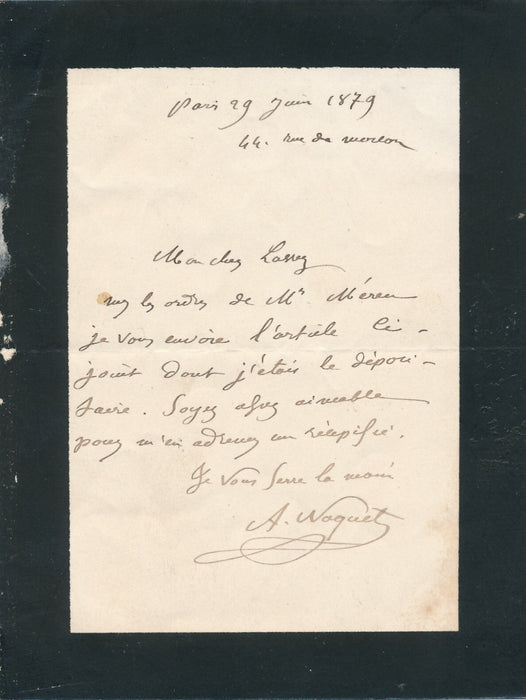 Paris 29 Juin 1879
44. rue de
Mon cher
sur les ordres de Mr Méreu
je vous envoie l'article ci-
joint dont j'étais le déposi-
taire. Soyez assez aimable
pour m'en adresser un récépissé.
Je vous serre la main
A. Noquet